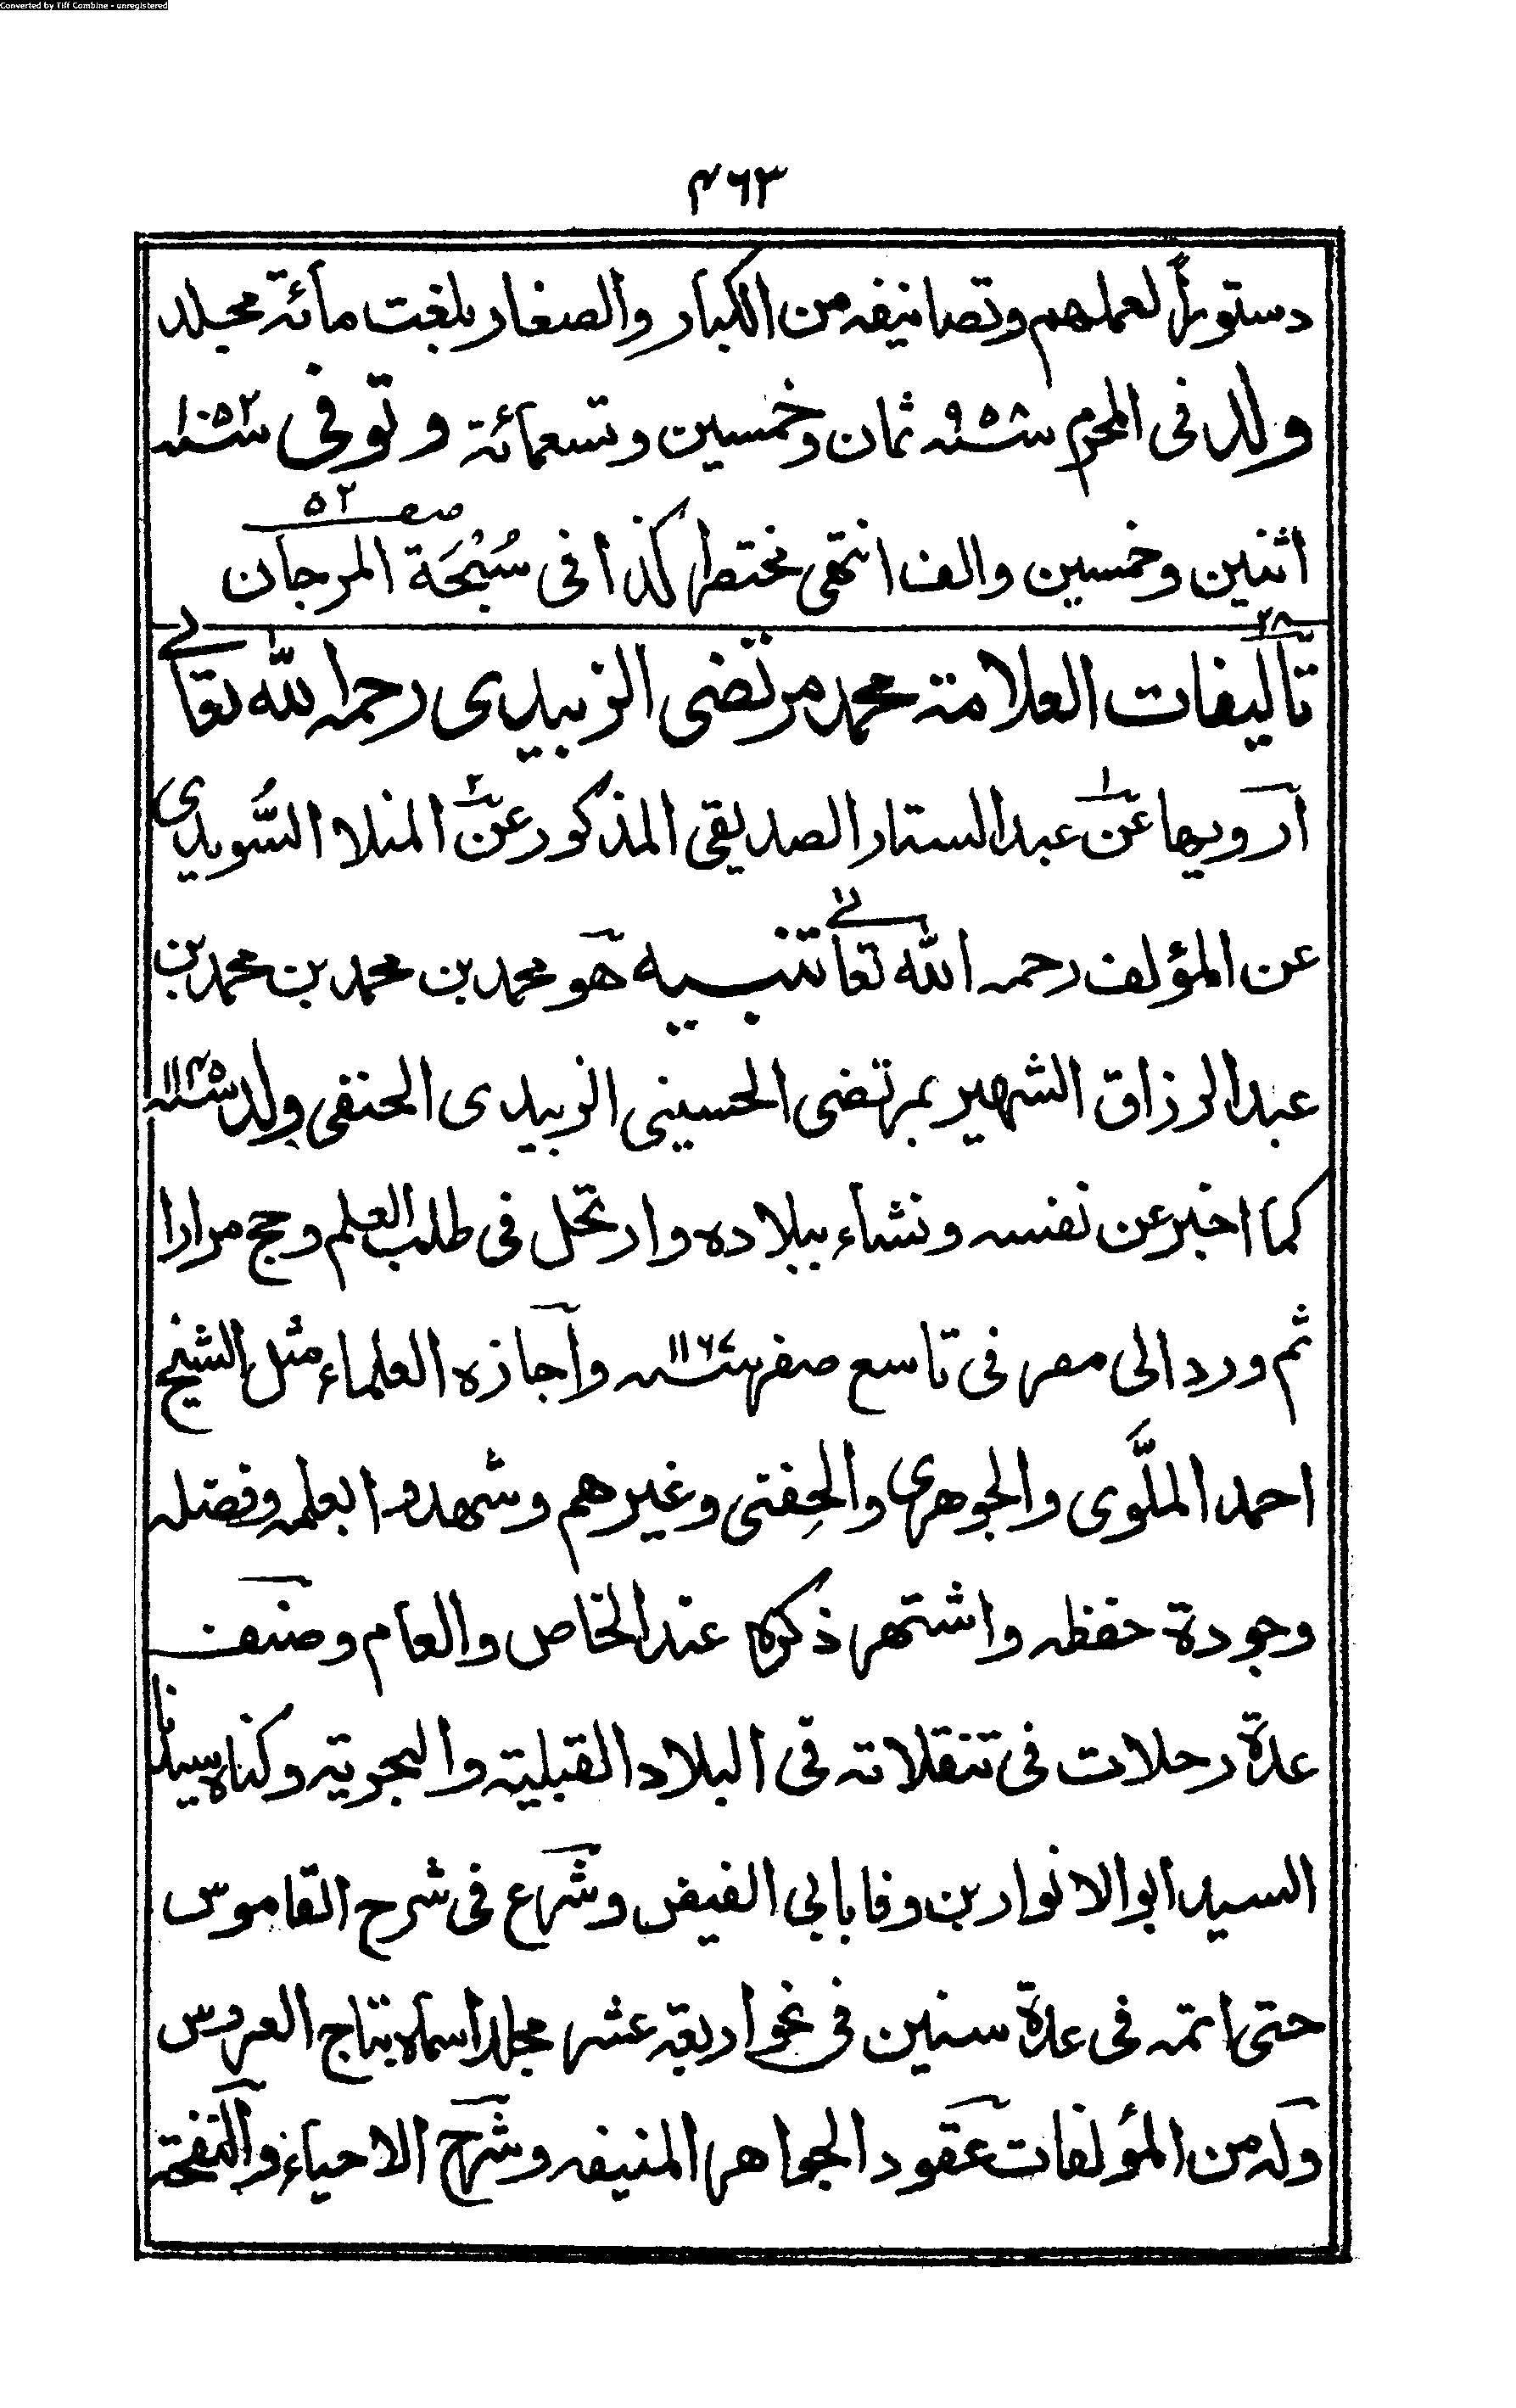 Converted by Tiff Combine - unregistered
۴۶۳
دستوراً لعملهم وتصانيفه من الكبار والصغار بلغت مائة مجلد
ولد فى المحرم سنة ۹۵۸ ثمان وخمسين وتسعمائة وتوفى سنة ۱۰۵۲
اثنين وخمسين والف انتهى مختصرا كذا فى سُبْحَة المرجان صفـ ۵۲
۲۸ تآليفات العلامة محمد مرتضى الزبيدى رحمه الله تعالے
أرويها عن ۱ عبد الستار الصديقى المذكور عن ۲ المنلا السُّويدى
عن المؤلف رحمه الله تعالے تنبيه هو محمد بن محمد بن محمد بن
عبد الرزاق الشهير بمرتضى الحسينى الزبيدى الحنفى ولد سنة ۱۱۴۵
كما اخبر عن نفسه ونشاء ببلاده وارتحل فى طلب العلم وحج مرارا
ثم ورد الى مصر فى تاسع صفر سنة ۱۱۶۷ وأجازه العلماء مثل الشيخ
احمد الملَّوى والجوهرى والحِفنى وغيرهم وشهدوا بعلمه وفضله
وجودة حفظه واشتهر ذكره عند الخاص والعام وصنف
عدة رحلات فى تنقلاته فى البلاد القبلية والبحرية وكناه سيدنا
السيد ابو الانوار بن وفا بابى الفيض وشرع فى شرح القاموس
حتى اتمه فى عدة سنين فى نحو اربعة عشر مجلدا سماه بتاج العروس
وله من المؤلفات عقود الجواهر المنيفه وشرح الاحياء والنفحة